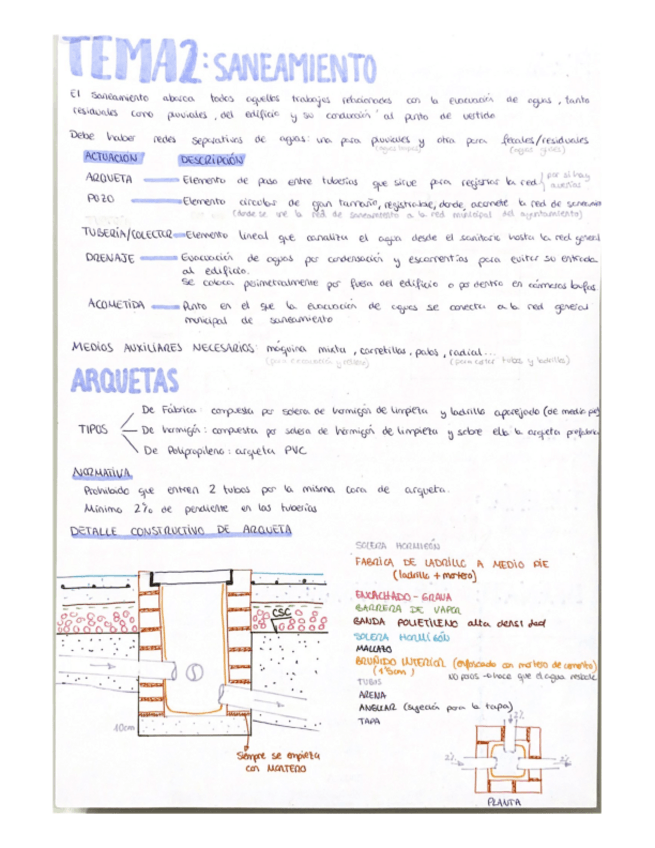 TEMA2: SANEAMIENTO
El saneamiento abarca todos aquellos trabajos relacionados con la evacuación de aguas, tanto
residuales como pluviales, del edificio y su conducción al punto de vertido
Debe haber redes separativas de aguas: una para pluviales y otra para fecales/residuales
(aguas limpias) (aguas grises)
ACTUACIÓN DESCRIPCIÓN
ARQUETA Elemento de paso entre tuberías que sirve para registrar la red (por si hay averías)
POZO Elemento circular de gran tamaño, registrable, donde acomete la red de saneamien
(donde se une la red de saneamiento a la red municipal del ayuntamiento)
TUBERÍA/COLECTOR Elemento lineal que canaliza el agua desde el sanitario hasta la red general
DRENAJE Evacuación de aguas por condensación y escorrentías para evitar su entrada
al edificio.
Se coloca perimetralmente por fuera del edificio o por dentro en cámaras bufas.
ACOMETIDA Punto en el que la evacuación de aguas se conecta a la red general
municipal de saneamiento
MEDIOS AUXILIARES NECESARIOS: máquina mixta, carretillas, palas, radial...
(para excavación y relleno) (para cortar tubos y ladrillo)
ARQUETAS
TIPOS
De Fábrica: compuesta por solera de hormigón de limpieza y ladrillo aparejado (de medio pie)
De hormigón: compuesta por solera de hormigón de limpieza y sobre ella la arqueta prefabrica
De Polipropileno: arqueta PVC
NORMATIVA
Prohibido que entren 2 tubos por la misma cara de arqueta.
Mínimo 2% de pendiente en las tuberías
DETALLE CONSTRUCTIVO DE ARQUETA
SOLERA HORMIGÓN
FÁBRICA DE LADRILLO A MEDIO PIE
(ladrillo + mortero)
ENCACHADO - GRAVA
BARRERA DE VAPOR
BANDA POLIETILENO alta densidad
SOLERA HORMIGÓN
MALLAZO
BRUÑIDO INTERIOR (enfoscado con mortero de cemento)
(1'5cm)
TUBOS
ARENA
ANGULAR (sujeción para la tapa)
TAPA
CSC
10cm
Siempre se empieza
con MORTERO
2%
2%
2%
PLANTA